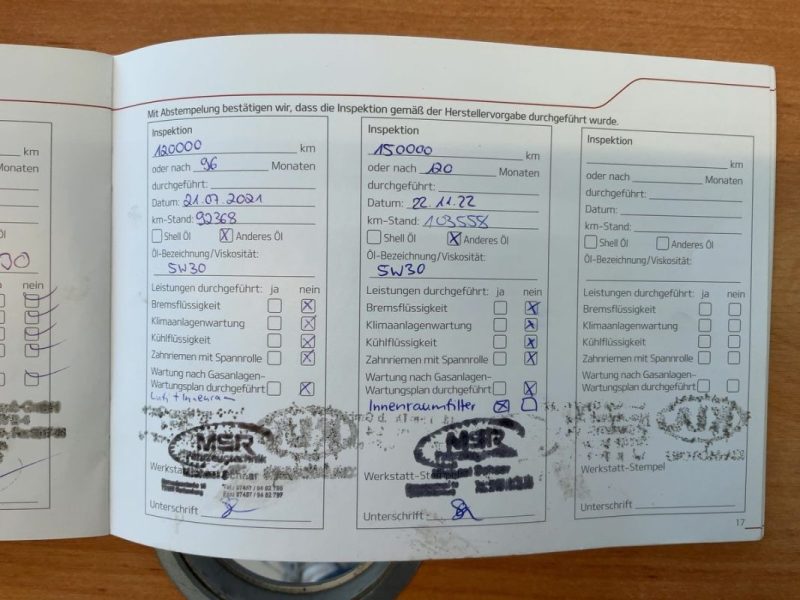 Mit Abstempelung bestätigen wir, dass die Inspektion gemäß der Herstellervorgabe durchgeführt wurde.
Monaten
Öl
nein
Inspektion
120000 km
oder nach 96 Monaten
durchgeführt:
Datum: 21.07.2021
km-Stand: 92368
Shell Öl X Anderes Öl
Öl-Bezeichnung/Viskosität:
5W30
Leistungen durchgeführt: ja nein
Bremsflüssigkeit X
Klimaanlagenwartung X
Kühlflüssigkeit X
Zahnriemen mit Spannrolle X
Wartung nach Gasanlagen-
Wartungsplan durchgeführt X
MSR
Werkstatt-
Unterschrift
Inspektion
150000 km
oder nach 120 Monaten
durchgeführt:
Datum: 22.11.22
km-Stand: 103558
Shell Öl X Anderes Öl
Öl-Bezeichnung/Viskosität:
5W30
Leistungen durchgeführt: ja nein
Bremsflüssigkeit X
Klimaanlagenwartung X
Kühlflüssigkeit X
Zahnriemen mit Spannrolle X
Wartung nach Gasanlagen-
Wartungsplan durchgeführt X
Innenraumfilter X
MSR
Werkstatt-Stempel
Unterschrift
Inspektion
km
oder nach Monaten
durchgeführt:
Datum:
km-Stand:
Shell Öl Anderes Öl
Öl-Bezeichnung/Viskosität:
Leistungen durchgeführt: ja nein
Bremsflüssigkeit
Klimaanlagenwartung
Kühlflüssigkeit
Zahnriemen mit Spannrolle
Wartung nach Gasanlagen-
Wartungsplan durchgeführt
Werkstatt-Stempel
Unterschrift
17